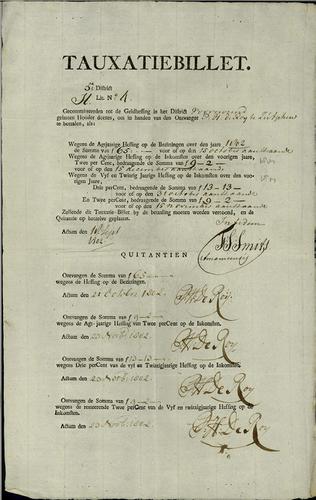 TAUXATIEBILLET.
5e District
H. Lit. No. 4.
Gecommitteerden tot de Geldheffing in het District
gelasten Houder deezes, om in handen van den Ontvanger P. H. de Roy te
te betaalen, als:
Wegens de Agtjaarige Heffing op de Bezittingen over den jaare 1802
de Somma van ƒ65 - - voor of op den 15 October aanstaande
Wegens de Agtjaarige Heffing op de Inkomsten over den voorigen jaare,
Twee per Cent, bedragende de Somma van ƒ9 - 2 -
voor of op den 15 December aanstaande
Wegens de Vyf en Twintig Jaarige Heffing op de Inkomsten over den voorigen Jaare,
Drie perCent, bedragende de Somma van ƒ13-13-
voor of op den 31 October aanstaande
En Twee perCent, bedragende de Somma van ƒ9 - 2 -
voor of op den 15 November aanstaande
Zullende dit Tauxatie-Billet by de betaaling moeten worden vertoond, en de
Quitantie op hetzelve geplaatst.
Actum den Sept
1802.
QUITANTIEN
Ontvangen de Somma van ƒ65 - -
wegens de Heffing op de Bezittingen.
Actum den 21 October 1802. P. H. de Roy.
Ontvangen de Somma van ƒ9 - 2 -
wegens de Agt-jaarige Heffing van Twee perCent op de Inkomsten.
Actum den 23 Novb. 1802. P. H. de Roy
Ontvangen de Somma van ƒ13 - 13 -
wegens Drie perCent van de vyf en Twintigjaarige Heffing op de Inkomsten.
Actum den 23 Novb. 1802. P. H. de Roy
Ontvangen de Somma van ƒ9 - 2 -
wegens de resteerende Twee perCent van de Vyf en twintigjaarige Heffing op de Inkomsten.
Actum den 23 Novb. 1802. P. H. de Roy